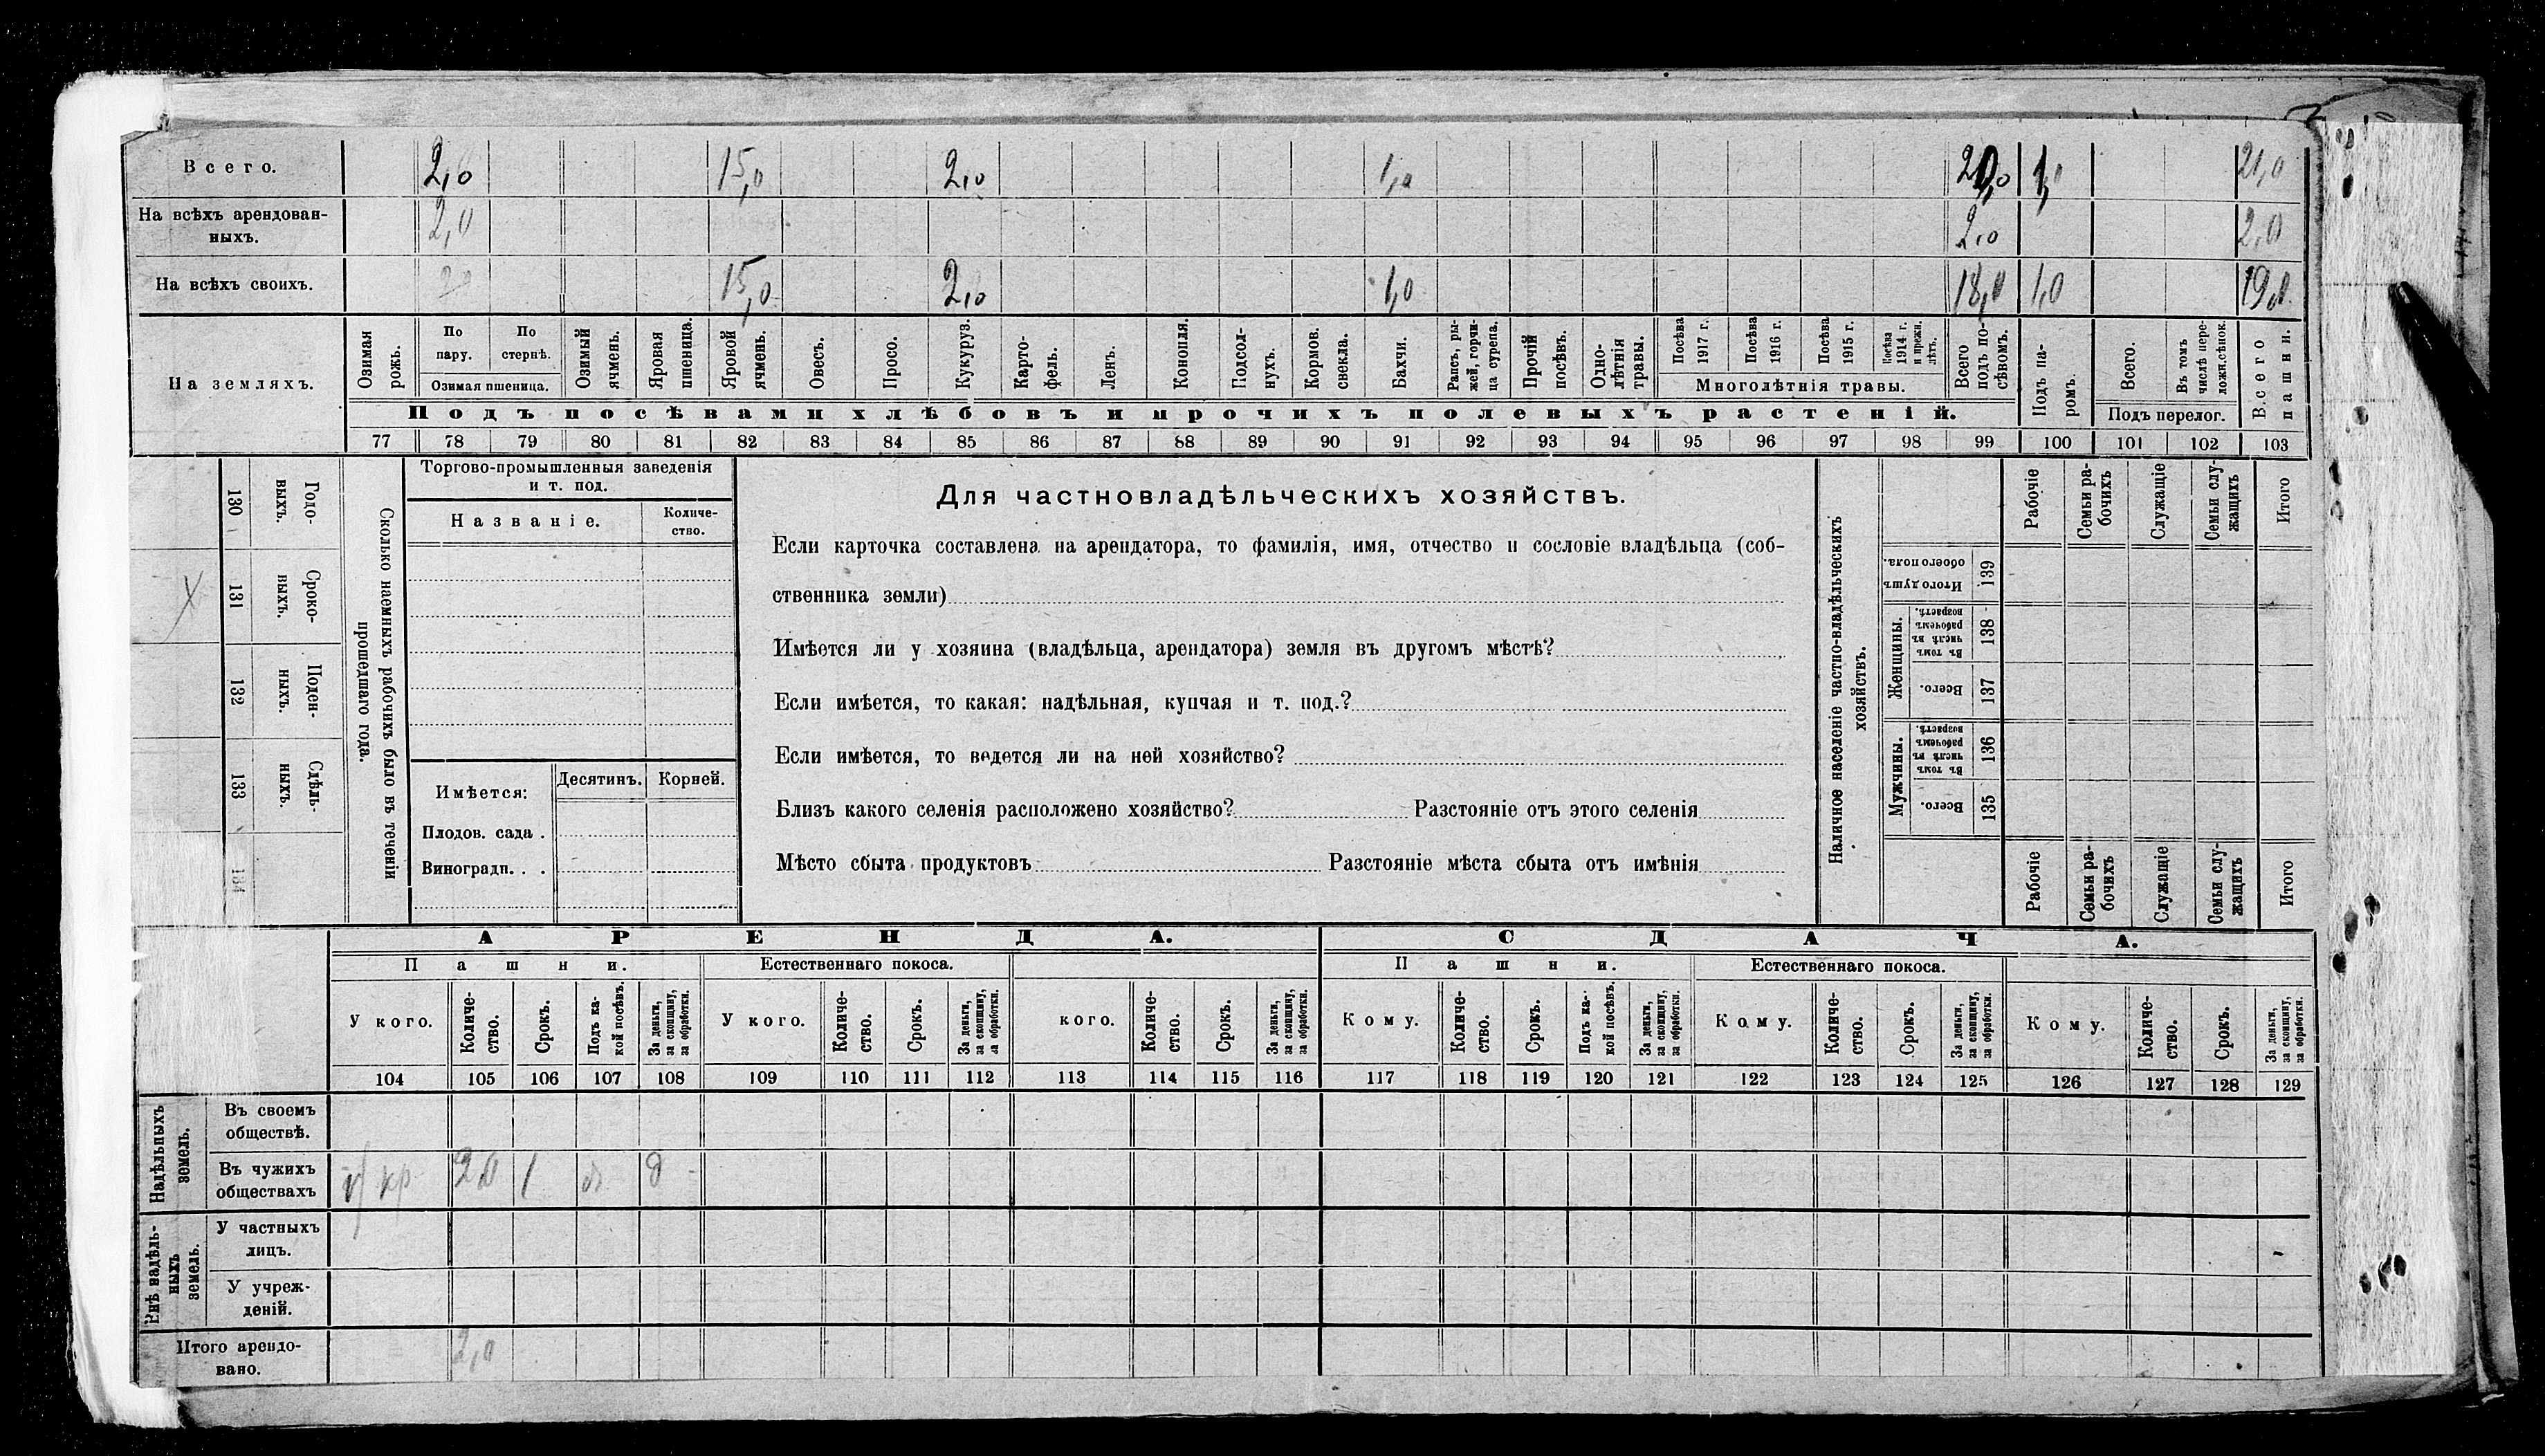 Всего. 2,0 15,0 2,0 1,0 20,0 1,0 21,0
На всѣхъ арендован-
ныхъ. 2,0 2,0 2,0
На всѣхъ своихъ. 15,0 2,0 1,0 18,0 1,0 19,0
На земляхъ.
Озимая рожь.
По пару.
По стернѣ.
Озимая пшеница.
Озимый ячмень.
Яровая пшеница.
Яровой ячмень.
Овесъ.
Просо.
Кукуруз.
Карто-
фель.
Ленъ.
Конопля.
Подсол-
нухъ.
Кормов. свекла.
Бахчи.
Рапсъ, ры-
жей, горчи-
ца сурепа.
Прочій посѣвъ.
Одно-
лѣтнія травы.
Посѣва 1917 г.
Посѣва 1916 г.
Посѣва 1915 г.
Посѣва 1914 г. и прежн. лѣтъ.
Многолѣтнія травы.
Всего подъ по-
сѣвомъ.
Подъ посѣвами хлѣбовъ и прочихъ полевыхъ растеній.
Подъ па-
ромъ.
Всего.
Въ томъ числѣ пере-
ложн.сѣнок.
Подъ перелог.
Всего пашни.
77 78 79 80 81 82 83 84 85 86 87 88 89 90 91 92 93 94 95 96 97 98 99 100 101 102 103
130 Годо-
выхъ.
131 Сроко-
ныхъ.
132 Поден-
ныхъ.
133 Сдѣль-
ныхъ.
134
Сколько наемныхъ рабочихъ было въ теченіи
прошедшаго года.
Торгово-промышленныя заведенія
и т. под.
Названіе.
Количе-
ство.
Имѣется:
Десятинъ.
Корней.
Плодов. сада .
Виноградн. . .
Для частновладѣльческихъ хозяйствъ.
Если карточка составлена на арендатора, то фамилія, имя, отчество и сословіе владѣльца (соб-
ственника земли)
Имѣется ли у хозяина (владѣльца, арендатора) земля въ другомъ мѣстѣ?
Если имѣется, то какая: надѣльная, купчая и т. под.?
Если имѣется, то ведется ли на ней хозяйство?
Близъ какого селенія расположено хозяйство? Разстояніе отъ этого селенія
Мѣсто сбыта продуктовъ Разстояніе мѣста сбыта отъ имѣнія
Наличное населеніе частно-владѣльческихъ
хозяйствъ.
Рабочіе
Семьи ра-
бочихъ
Служащіе
Семьи слу-
жащихъ
Итого
Итого душъ обоего пола. 139
Женщины.
Въ томъ числѣ въ рабочемъ возрастѣ. 138
Всего. 137
Мужчины.
Въ томъ числѣ въ рабочемъ возрастѣ. 136
Всего. 135
Рабочіе
Семьи ра-
бочихъ
Служащіе
Семьи слу-
жащихъ
Итого
АРЕНДА.
СДАЧА.
Пашни.
Естественнаго покоса.
Пашни.
Естественнаго покоса.
У кого.
Количе-
ство.
Срокъ.
Подъ ка-
кой посѣвъ.
За деньги, за скопщину, за обработки.
У кого.
Количе-
ство.
Срокъ.
За деньги, за скопщину, за обработки.
кого.
Количе-
ство.
Срокъ.
За деньги, за скопщину, за обработки.
Кому.
Количе-
ство.
Срокъ.
Подъ ка-
кой посѣвъ.
За деньги, за скопщину, за обработки.
Кому.
Количе-
ство.
Срокъ.
За деньги, за скопщину, за обработки.
Кому.
Количе-
ство.
Срокъ.
За деньги, за скопщину, за обработки.
104 105 106 107 108 109 110 111 112 113 114 115 116 117 118 119 120 121 122 123 124 125 126 127 128 129
Надѣльныхъ земель.
Въ своемъ
обществѣ.
Въ чужихъ
обществахъ кр 2,0 1 д
Внѣ надѣль-
ныхъ земель.
У частныхъ
лицъ.
У учреж-
деній.
Итого арендо-
вано. 2,0